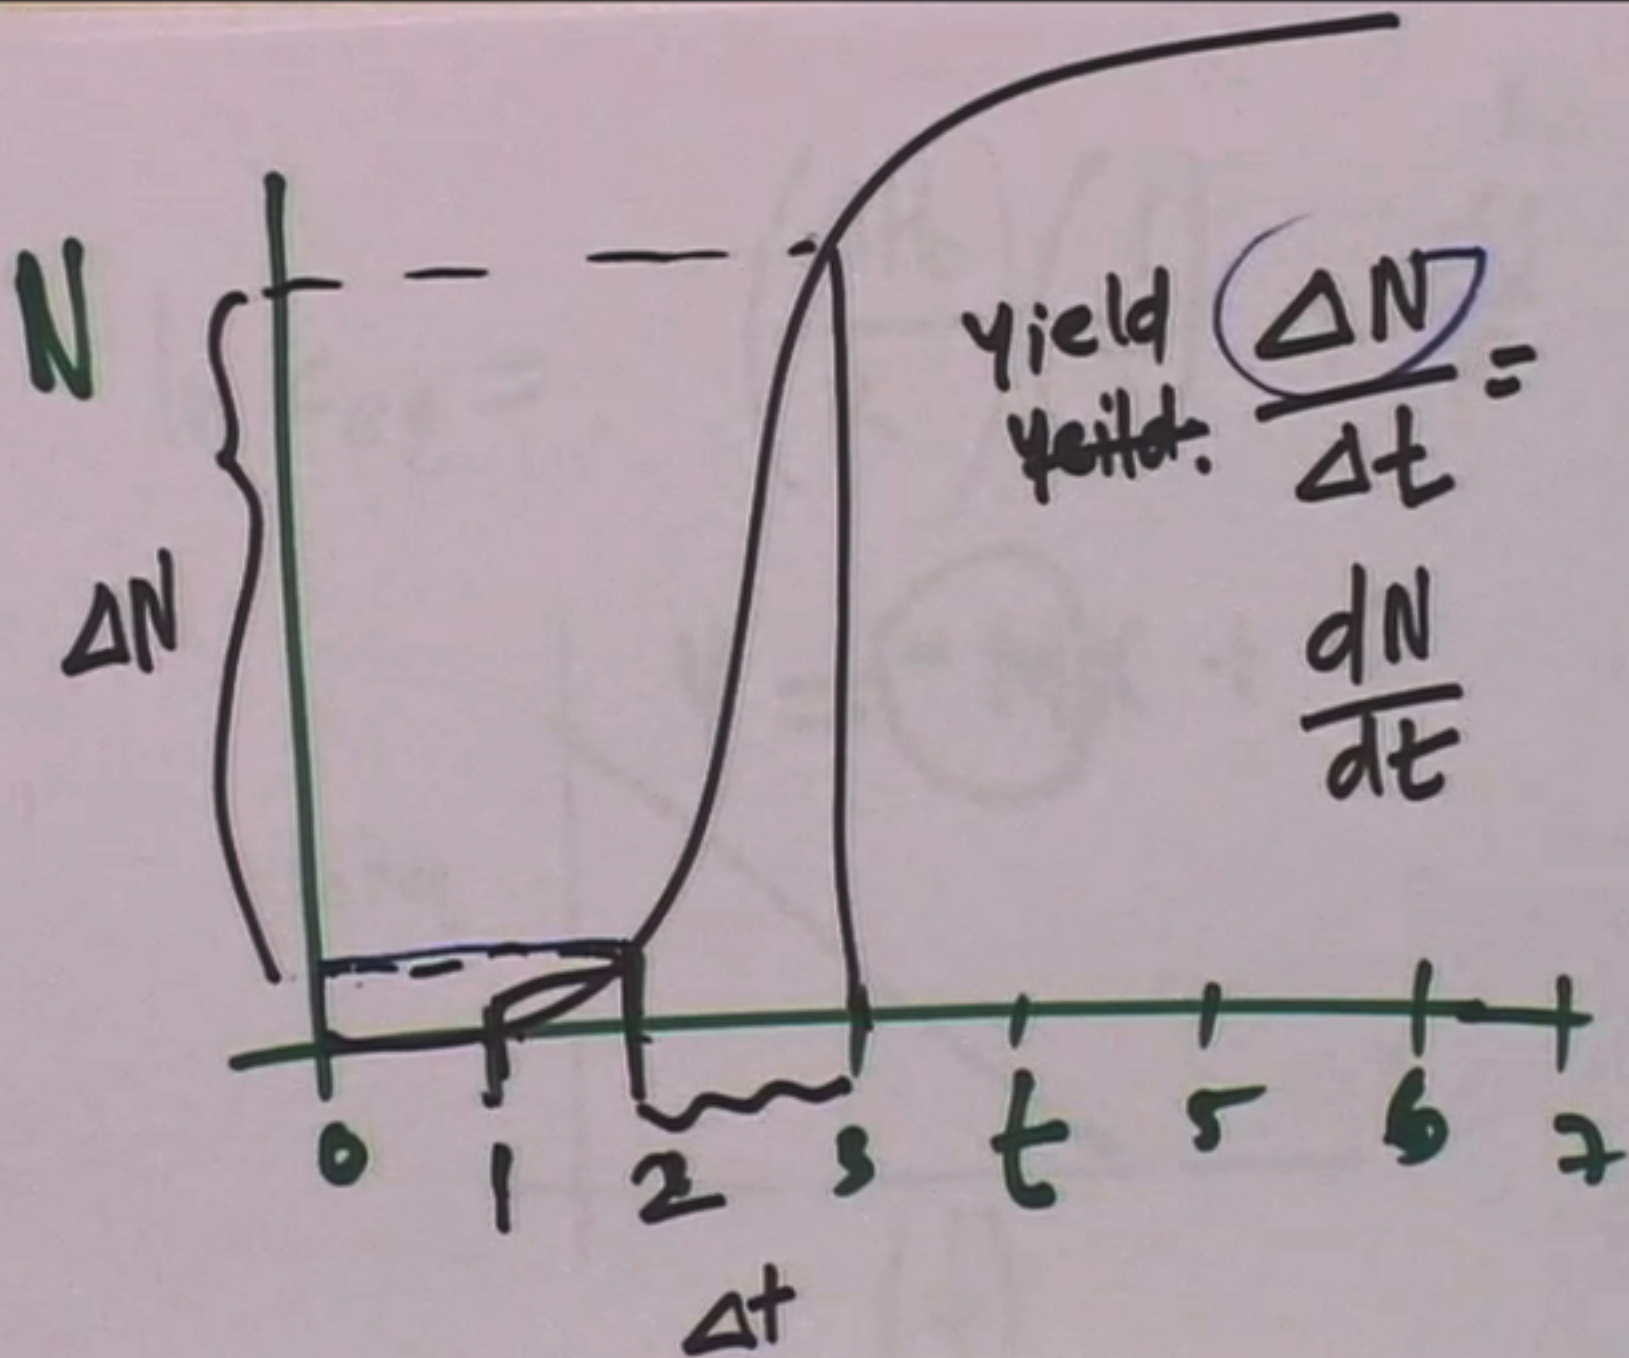 N
yield ΔN
yeild. Δt =
ΔN
dN
dt
0 1 2 3 t 5 6 7
Δt